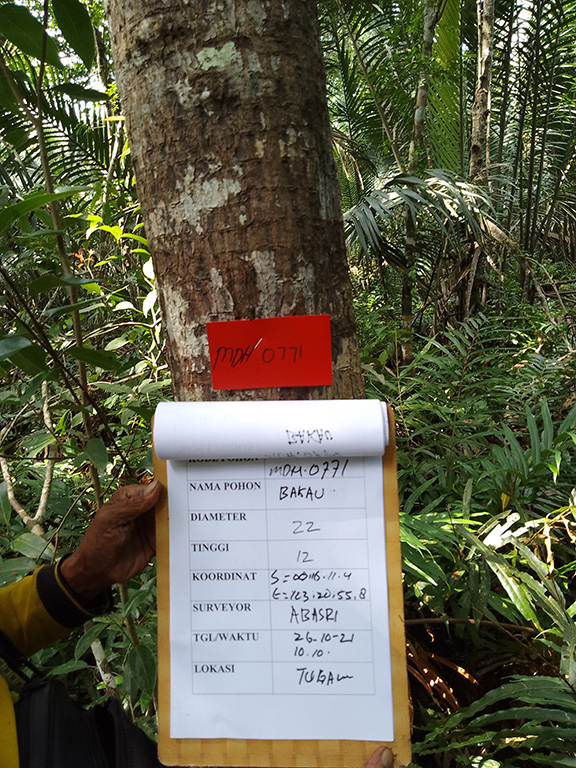 MDH 0771
BAKAU
KODE POHON
MDH.0771
NAMA POHON BAKAU
DIAMETER 22
TINGGI 12
KOORDINAT S=00.16.11.4
E=103.20.55.8
SURVEYOR ABASRI
TGL/WAKTU 26-10-21
10.10.
LOKASI TUGAU